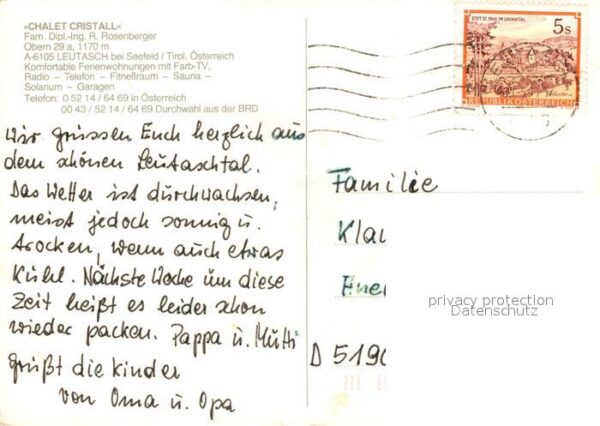 »CHALET CRISTALL«
Fam. Dipl.-Ing. R. Rosenberger
Obern 29 a, 1170 m
A-6105 LEUTASCH bei Seefeld / Tirol, Österreich
Komfortable Ferienwohnungen mit Farb-TV,
Radio – Telefon – Fitneßraum – Sauna –
Solarium – Garagen
Telefon: 0 52 14 / 64 69 in Österreich
00 43 / 52 14 / 64 69 Durchwahl aus der BRD
Wir grüssen Euch herzlich aus
dem schönen Leutaschtal.
Das Wetter ist durchwachsen,
meist jedoch sonnig u.
trocken, wenn auch etwas
kühl. Nächste Woche um diese
Zeit heißt es leider schon
wieder packen. Pappa u. Mutti
grüßt die kinder
von Oma u. Opa
STIFT ST. PAUL IM LAVANTTAL
5s
REPUBLIK ÖSTERREICH
Familie
Klau
D 5190
privacy protection
Datenschutz